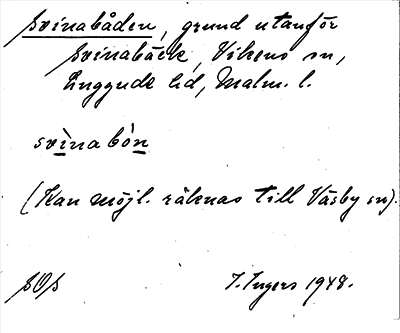 Svinabåden, grund utanför
Svinabäck, Vikens sn,
Luggude hd, Malm. l.
svìnabón
(Kan möjl. räknas till Väsby sn).
SOS
I. Ingers 1948.